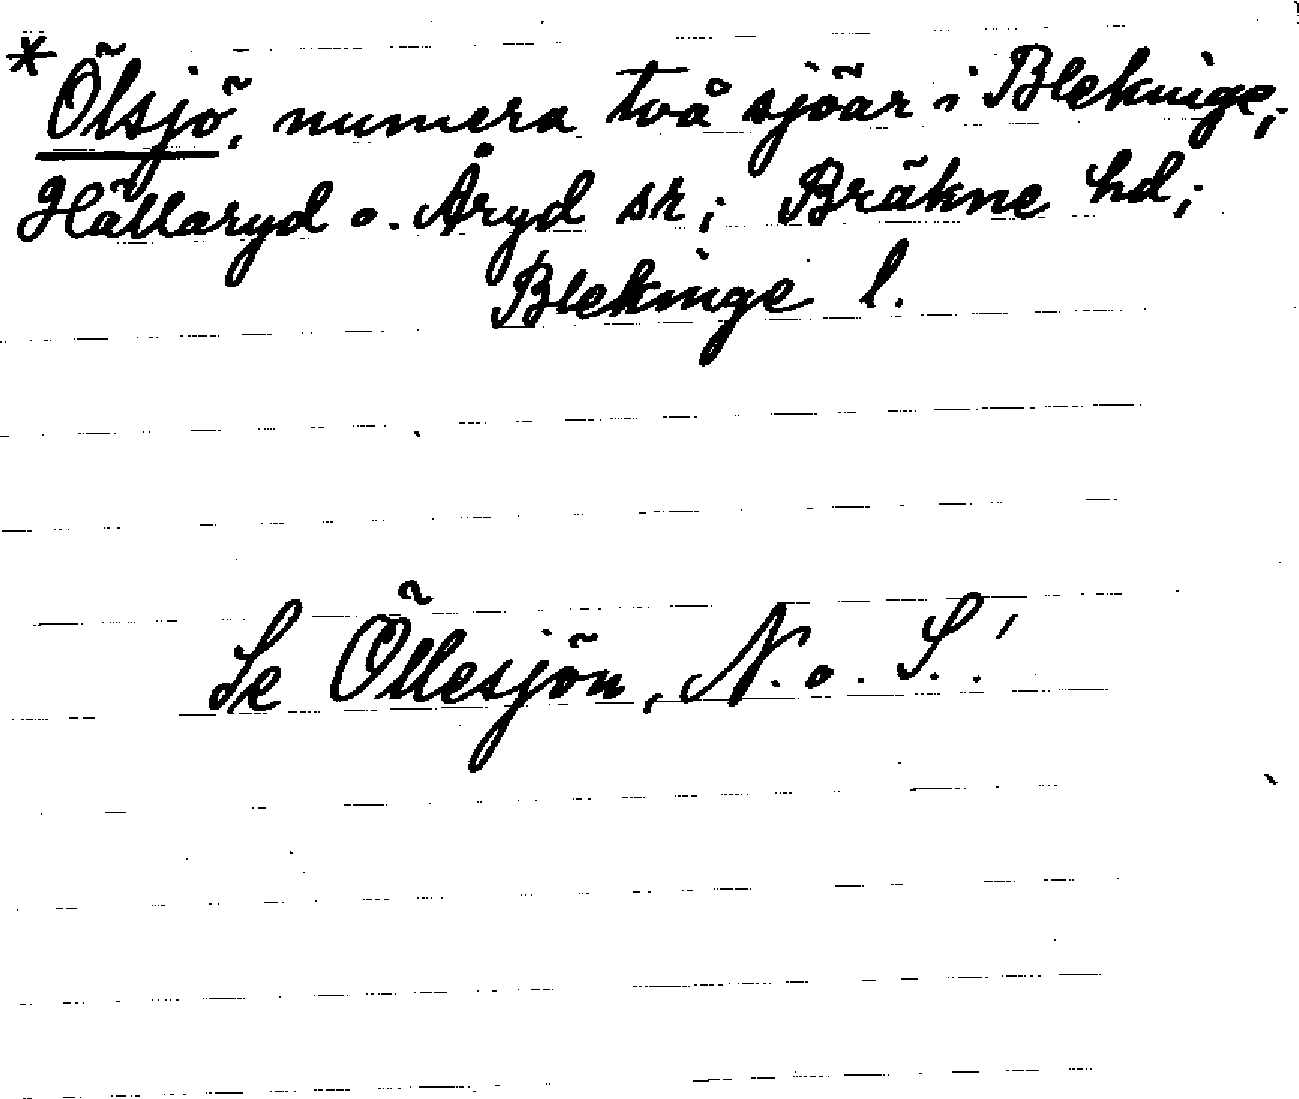 *Ölsjö, numera två sjöar i Blekinge;
Hällaryd o. Åryd sr; Bräkne hd;
Blekinge l.
Se Öllesjön, N. o. S.!